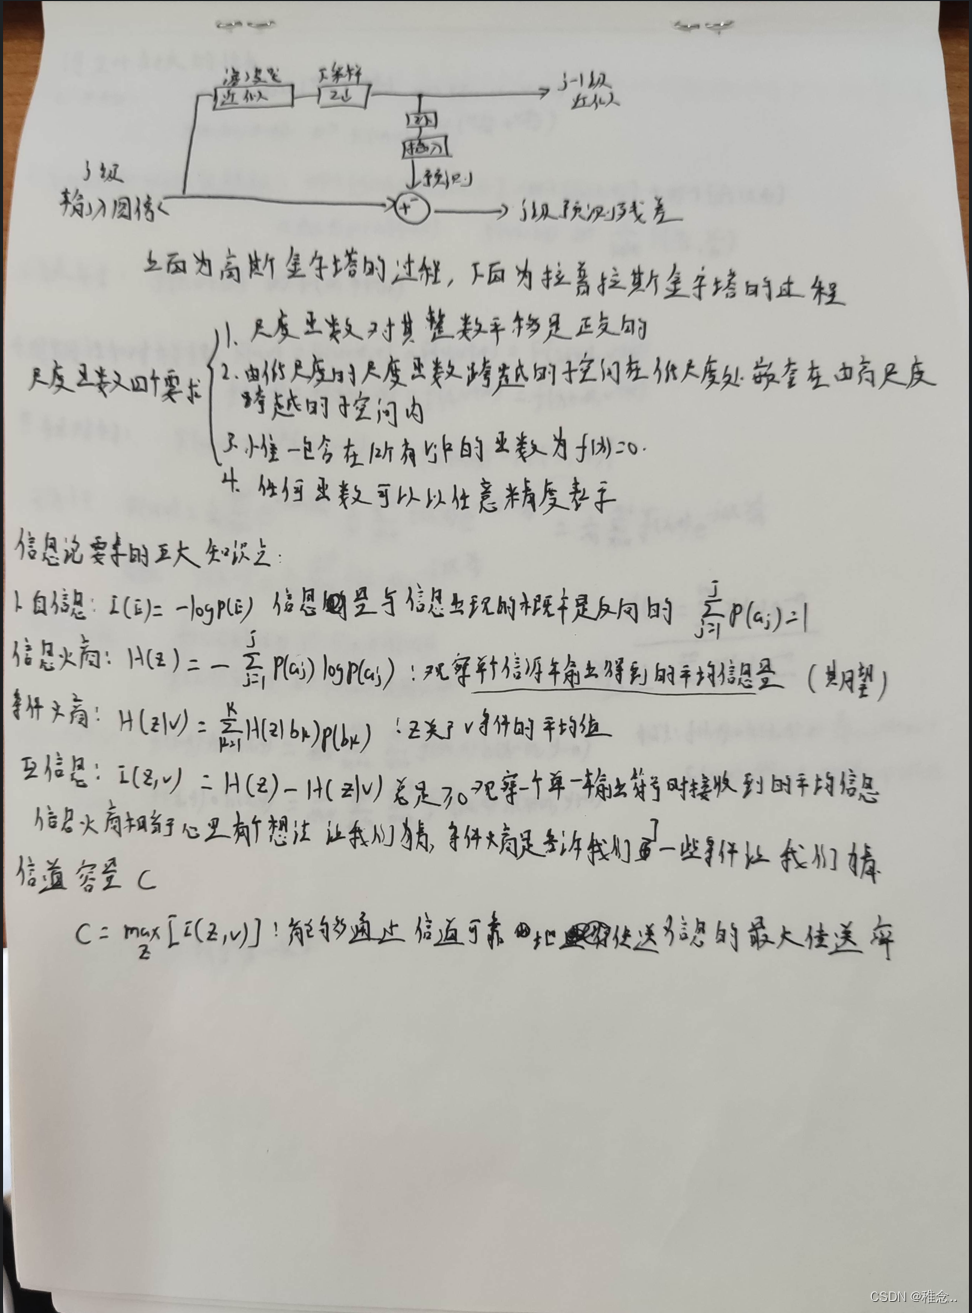 滤波器 下采样 j-1级
近似 2↓ 近似
2↑
插入
j级 预测
输入图像 + - j级预测残差
上面为高斯金字塔的过程，下面为拉普拉斯金字塔的过程
1. 尺度函数对其整数平移是正交的
尺度函数四个要求 2. 由低尺度的尺度函数跨越的子空间在低尺度处嵌套在由高尺度
跨越的子空间内
3. 唯一包含在所有Vj中的函数为f(x)=0.
4. 任何函数可以以任意精度表示
信息论要求的五大知识点:
1. 自信息: I(E)= -logP(E) 信息量与信息出现的概率是反向的 \sum_{j=1}^{J} P(a_j)=1
信息火商: H(z) = - \sum_{j=1}^{J} P(a_j) logP(a_j) : 观察单个信源输出得到的平均信息量 (期望)
条件火商: H(z|v) = \sum_{k=1}^{K} H(z|b_k)p(b_k) : z关于v条件的平均值
互信息: I(z,v) = H(z) - H(z|v) 总是≥0 观察一个单一输出符号时接收到的平均信息
信息火商相当于心里有个想法让我们猜, 条件火商是告诉我们一些条件让我们猜
信道容量 C
C = \max_z [I(z,v)] : 能够通过信道可靠地传送信息的最大传送率
CSDN @稚念..